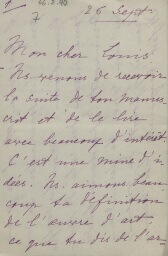 26 Sept
Mon cher Louis
Ns venons de recevoir
la suite de ton manus
crit et de le lire
avec beaucoup d'intérêt.
C'est une mine d'i
dées. Ns. aimons beau
coup ta définition
de l'œuvre d'art
ce que tu dis de l'ar